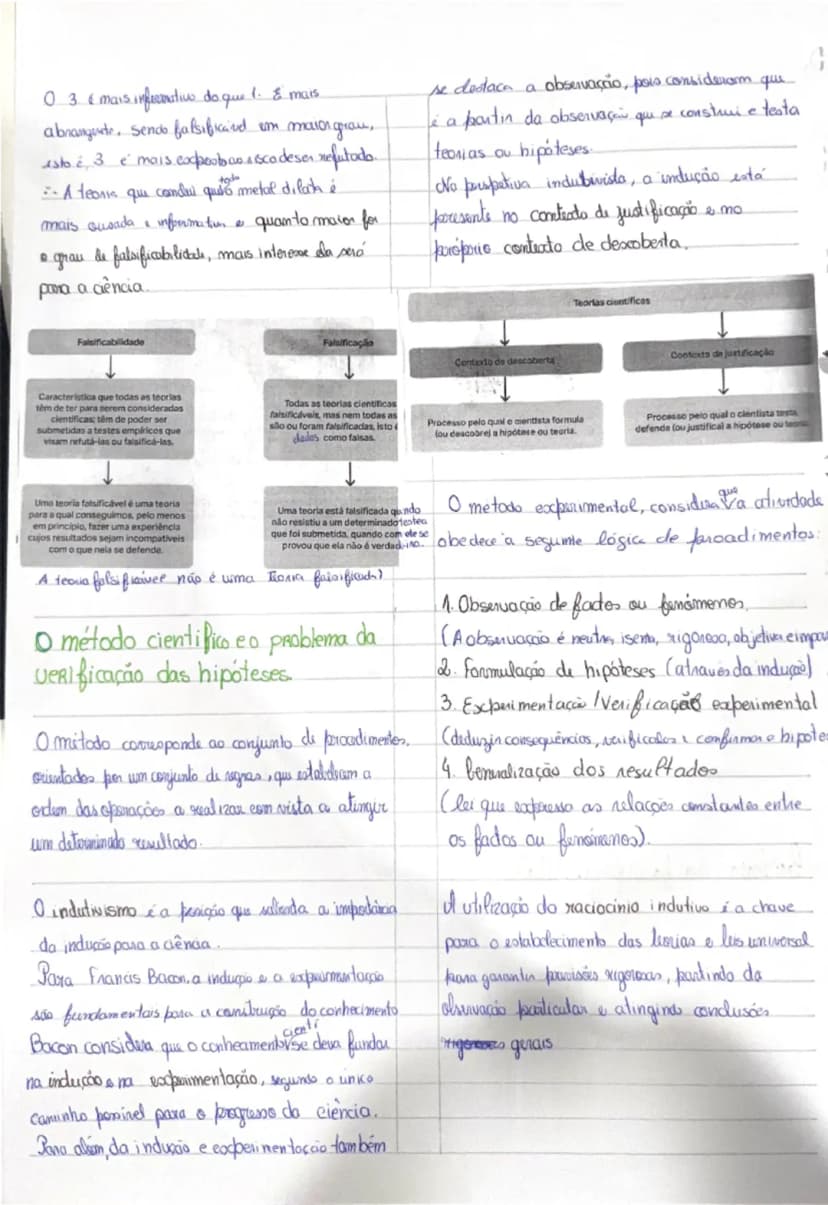 O 3 é mais informativo do que 1. É mais
abrangente, sendo falsificável em maior grau,
isto é, 3 é mais exposto ao risco de ser refutado.
∴ A teoria que conclui que todo metal dilata é
mais ousada e informativa e quanto maior for
o grau de falsificabilidade, mais interesse ela será
para a ciência.
Falsificabilidade
Característica que todas as teorias
têm de ter para serem consideradas
científicas: têm de poder ser
submetidas a testes empíricos que
visam refutá-las ou falsificá-las.
Uma teoria falsificável é uma teoria
para a qual conseguimos, pelo menos
em princípio, fazer uma experiência
cujos resultados sejam incompatíveis
com o que nela se defende.
Falsificação
Todas as teorias científicas
falsificáveis, mas nem todas as
são ou foram falsificadas, isto é
dadas como falsas.
Uma teoria está falsificada quando
não resistiu a um determinado teste a
que foi submetida, quando com ele se
provou que ela não é verdadeira.
A teoria falsificável não é uma teoria falsificada?
O método científico e o problema da
verificação das hipóteses.
O método corresponde ao conjunto de procedimentos,
orientados por um conjunto de regras, que estabelecem a
ordem das operações a realizar com vista a atingir
um determinado resultado.
O indutivismo é a posição que salienta a importância
da indução para a ciência.
Para Francis Bacon, a indução e a experimentação
são fundamentais para a construção do conhecimento
cientí
Bacon considera que o conhecimento se deva fundar
na indução e na experimentação, segundo o único
caminho possível para o progresso da ciência.
Para além, da indução e experimentação também
se destaca a observação, pois consideram que
é a partir da observação que se construi e testa
teorias ou hipóteses.
Na perspetiva indutivista, a indução está
presente no contexto de justificação e no
próprio contexto de descoberta.
Teorias científicas
Contexto de descoberta
Processo pelo qual o cientista formula
(ou descobre) a hipótese ou teoria.
Contexto de justificação
Processo pelo qual o cientista testa,
defende (ou justifica) a hipótese ou teoria.
O metodo experimental, considera que a atividade
obedece à seguinte lógica de procedimentos:
1. Observação de factos ou fenómenos.
(A observação é neutra, isenta, rigorosa, objetiva e impar
2. Formulação de hipóteses (através da indução)
3. Experimentação / Verificação experimental
(deduzir consequências, verificadas e confirmar o hipote
4. Generalização dos resultados
(lei que expressa as relações constantes entre
os factos ou fenómenos).
A utilização do raciocínio indutivo é a chave
para o estabelecimento das teorias e leis universal
para garantir previsões rigorosas, partindo da
observação particular e atingindo conclusões
gerais